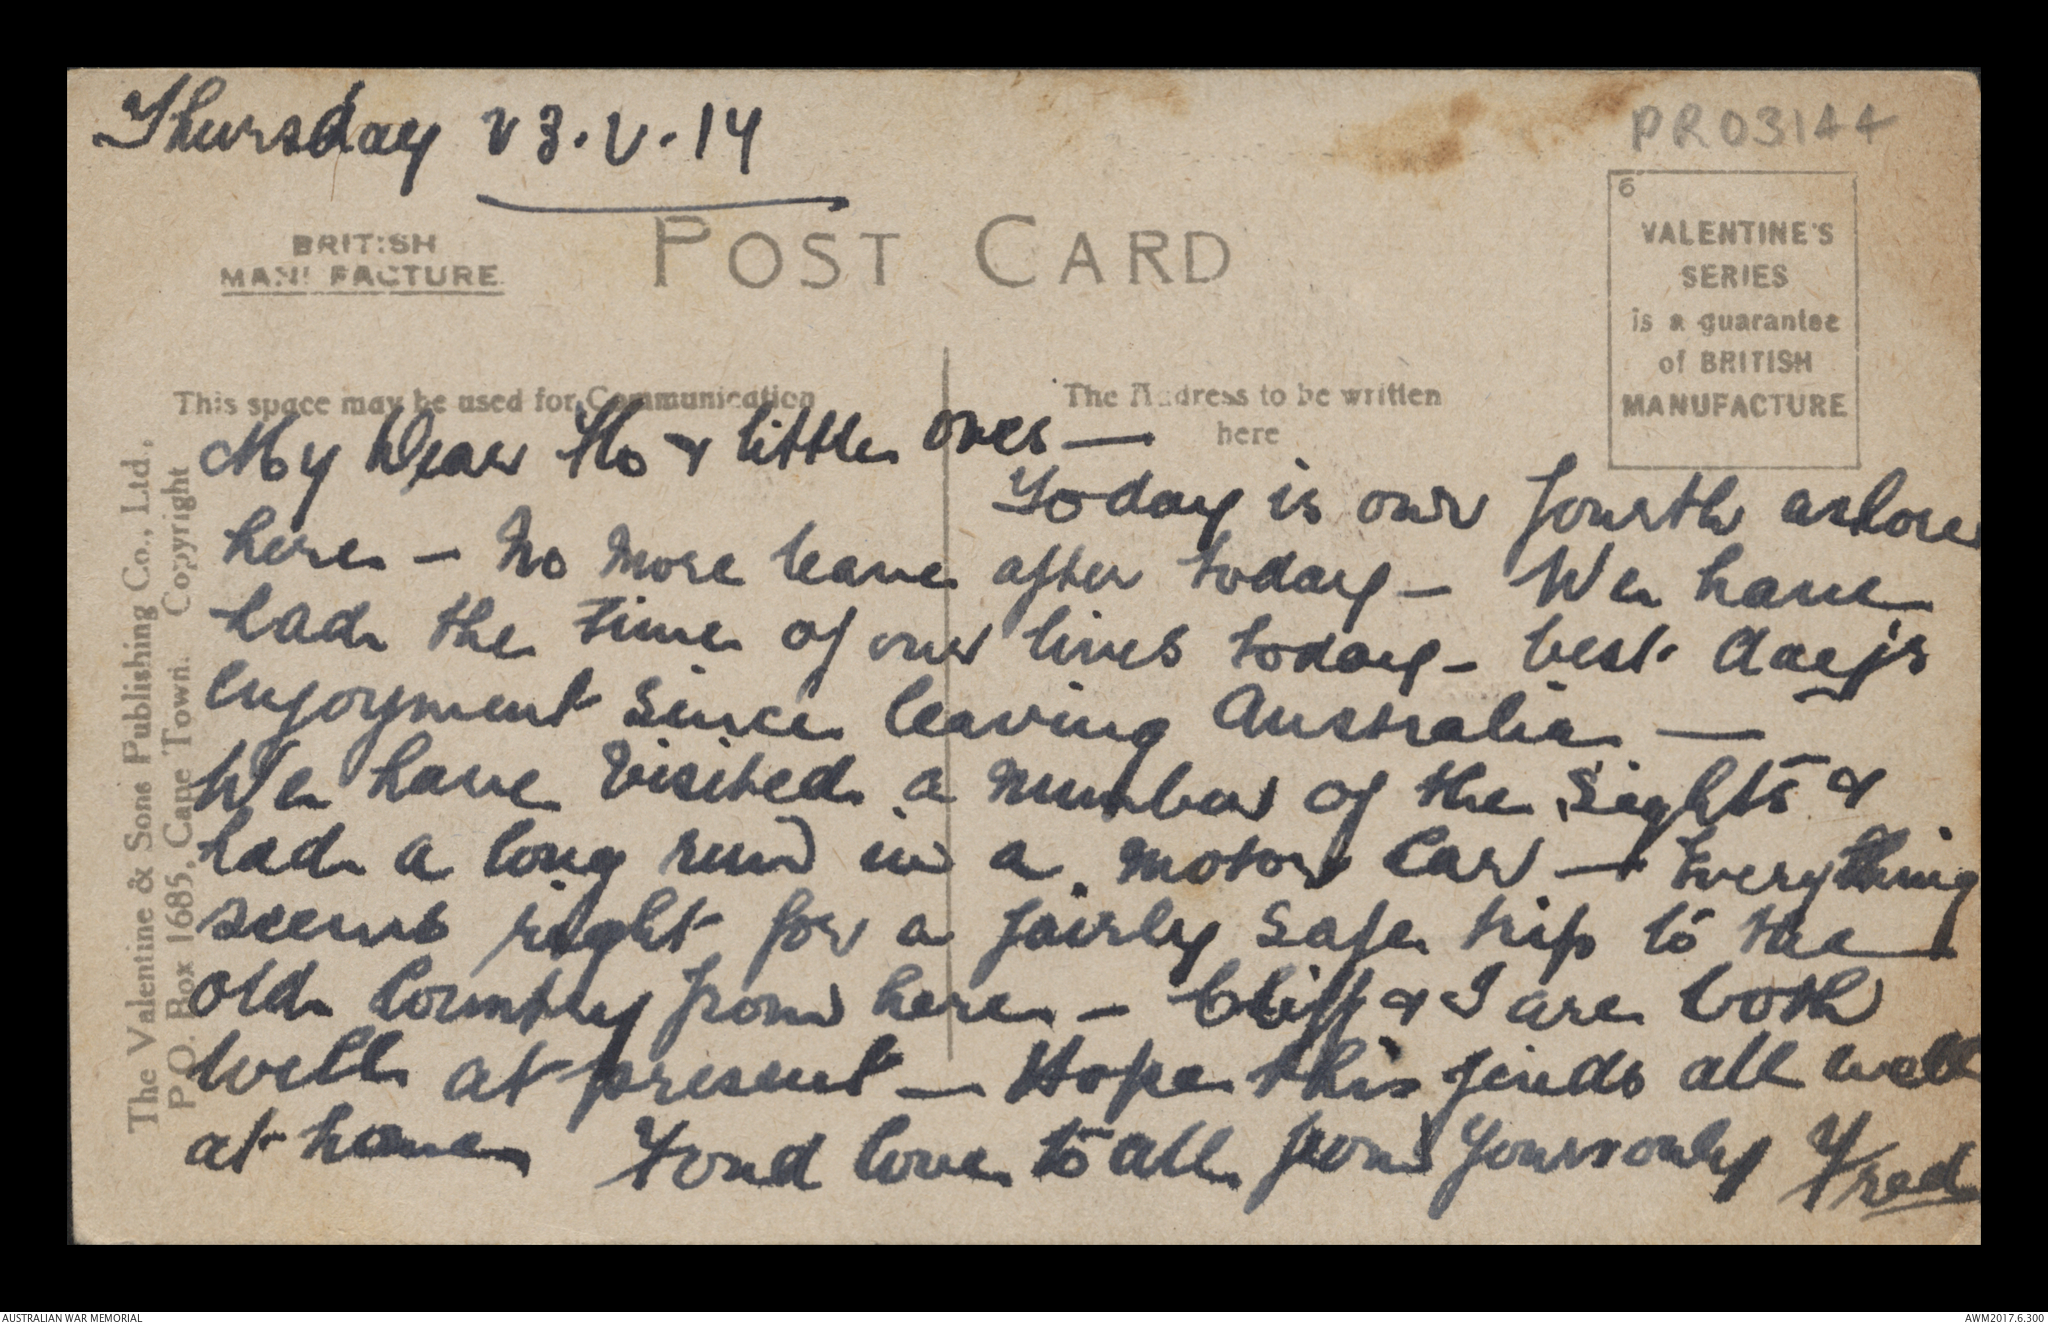 Thursday 23.V.14
PR03144
BRITISH
MANUFACTURE
POST CARD
6
VALENTINE'S
SERIES
is a guarantee
of BRITISH
MANUFACTURE
This space may be used for Communication
The Address to be written
here
The Valentine & Sons Publishing Co., Ltd.,
P.O. Box 1685, Cape Town. Copyright
My Dear Flo & little ones —
Today is our fourth ashore
here - No more leave after today - We have
had the time of our lives today - best day's
enjoyment since leaving Australia —
We have visited a number of the sights &
had a long run in a motor car — Everything
seems right for a fairly safe trip to the
old Country from here - Cliff & I are both
well at present — Hope this finds all well
at home Fond love to all from Yours only Fred
AUSTRALIAN WAR MEMORIAL
AWM2017.6.300